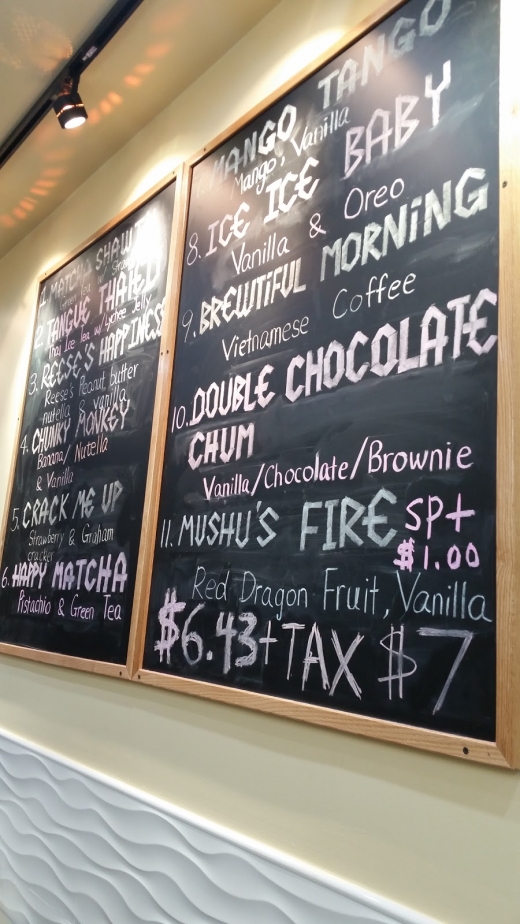 1. MATCHA SHAWTY
Green Tea
2. TANGUE THAIED
Thai Ice Tea w/ Lychee Jelly
3. REESE'S HAPPINESS
Reese's Peanut butter
nutella & vanilla
4. CHUNKY MONKEY
Banana/Nutella
& Vanilla
5. CRACK ME UP
Strawberry & Graham
cracker
6. HAPPY MATCHA
Pistachio & Green Tea
MANGO TANGO
Mango, Vanilla
8. ICE ICE BABY
Vanilla & Oreo
9. BREWTiFUL MORNiNG
Vietnamese Coffee
10. DOUBLE CHOCOLATE
CHUM
Vanilla/Chocolate/Brownie
11. MUSHU'S FIRE SP+
$1.00
Red Dragon Fruit, Vanilla
$6.43+TAX $7